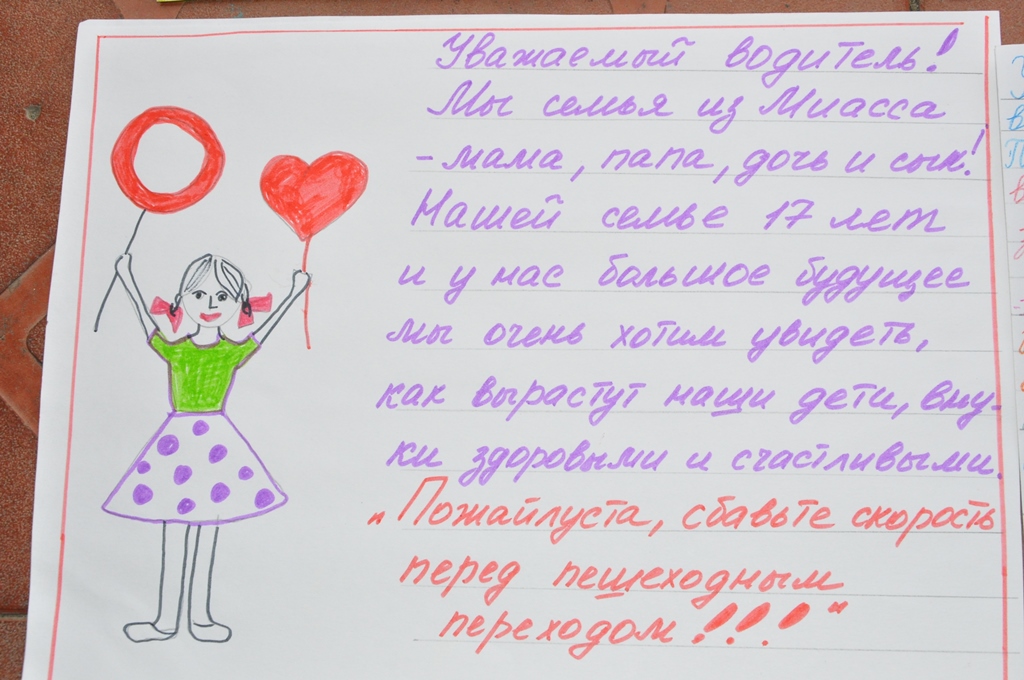 Уважаемый водитель!
Мы семья из Миасса
- мама, папа, дочь и сын!
Нашей семье 17 лет
и у нас большое будущее
мы очень хотим увидеть,
как вырастут наши дети, вну-
ки здоровыми и счастливыми.
„Пожайлуста, сбавьте скорость
перед пешеходным
переходом!!!"